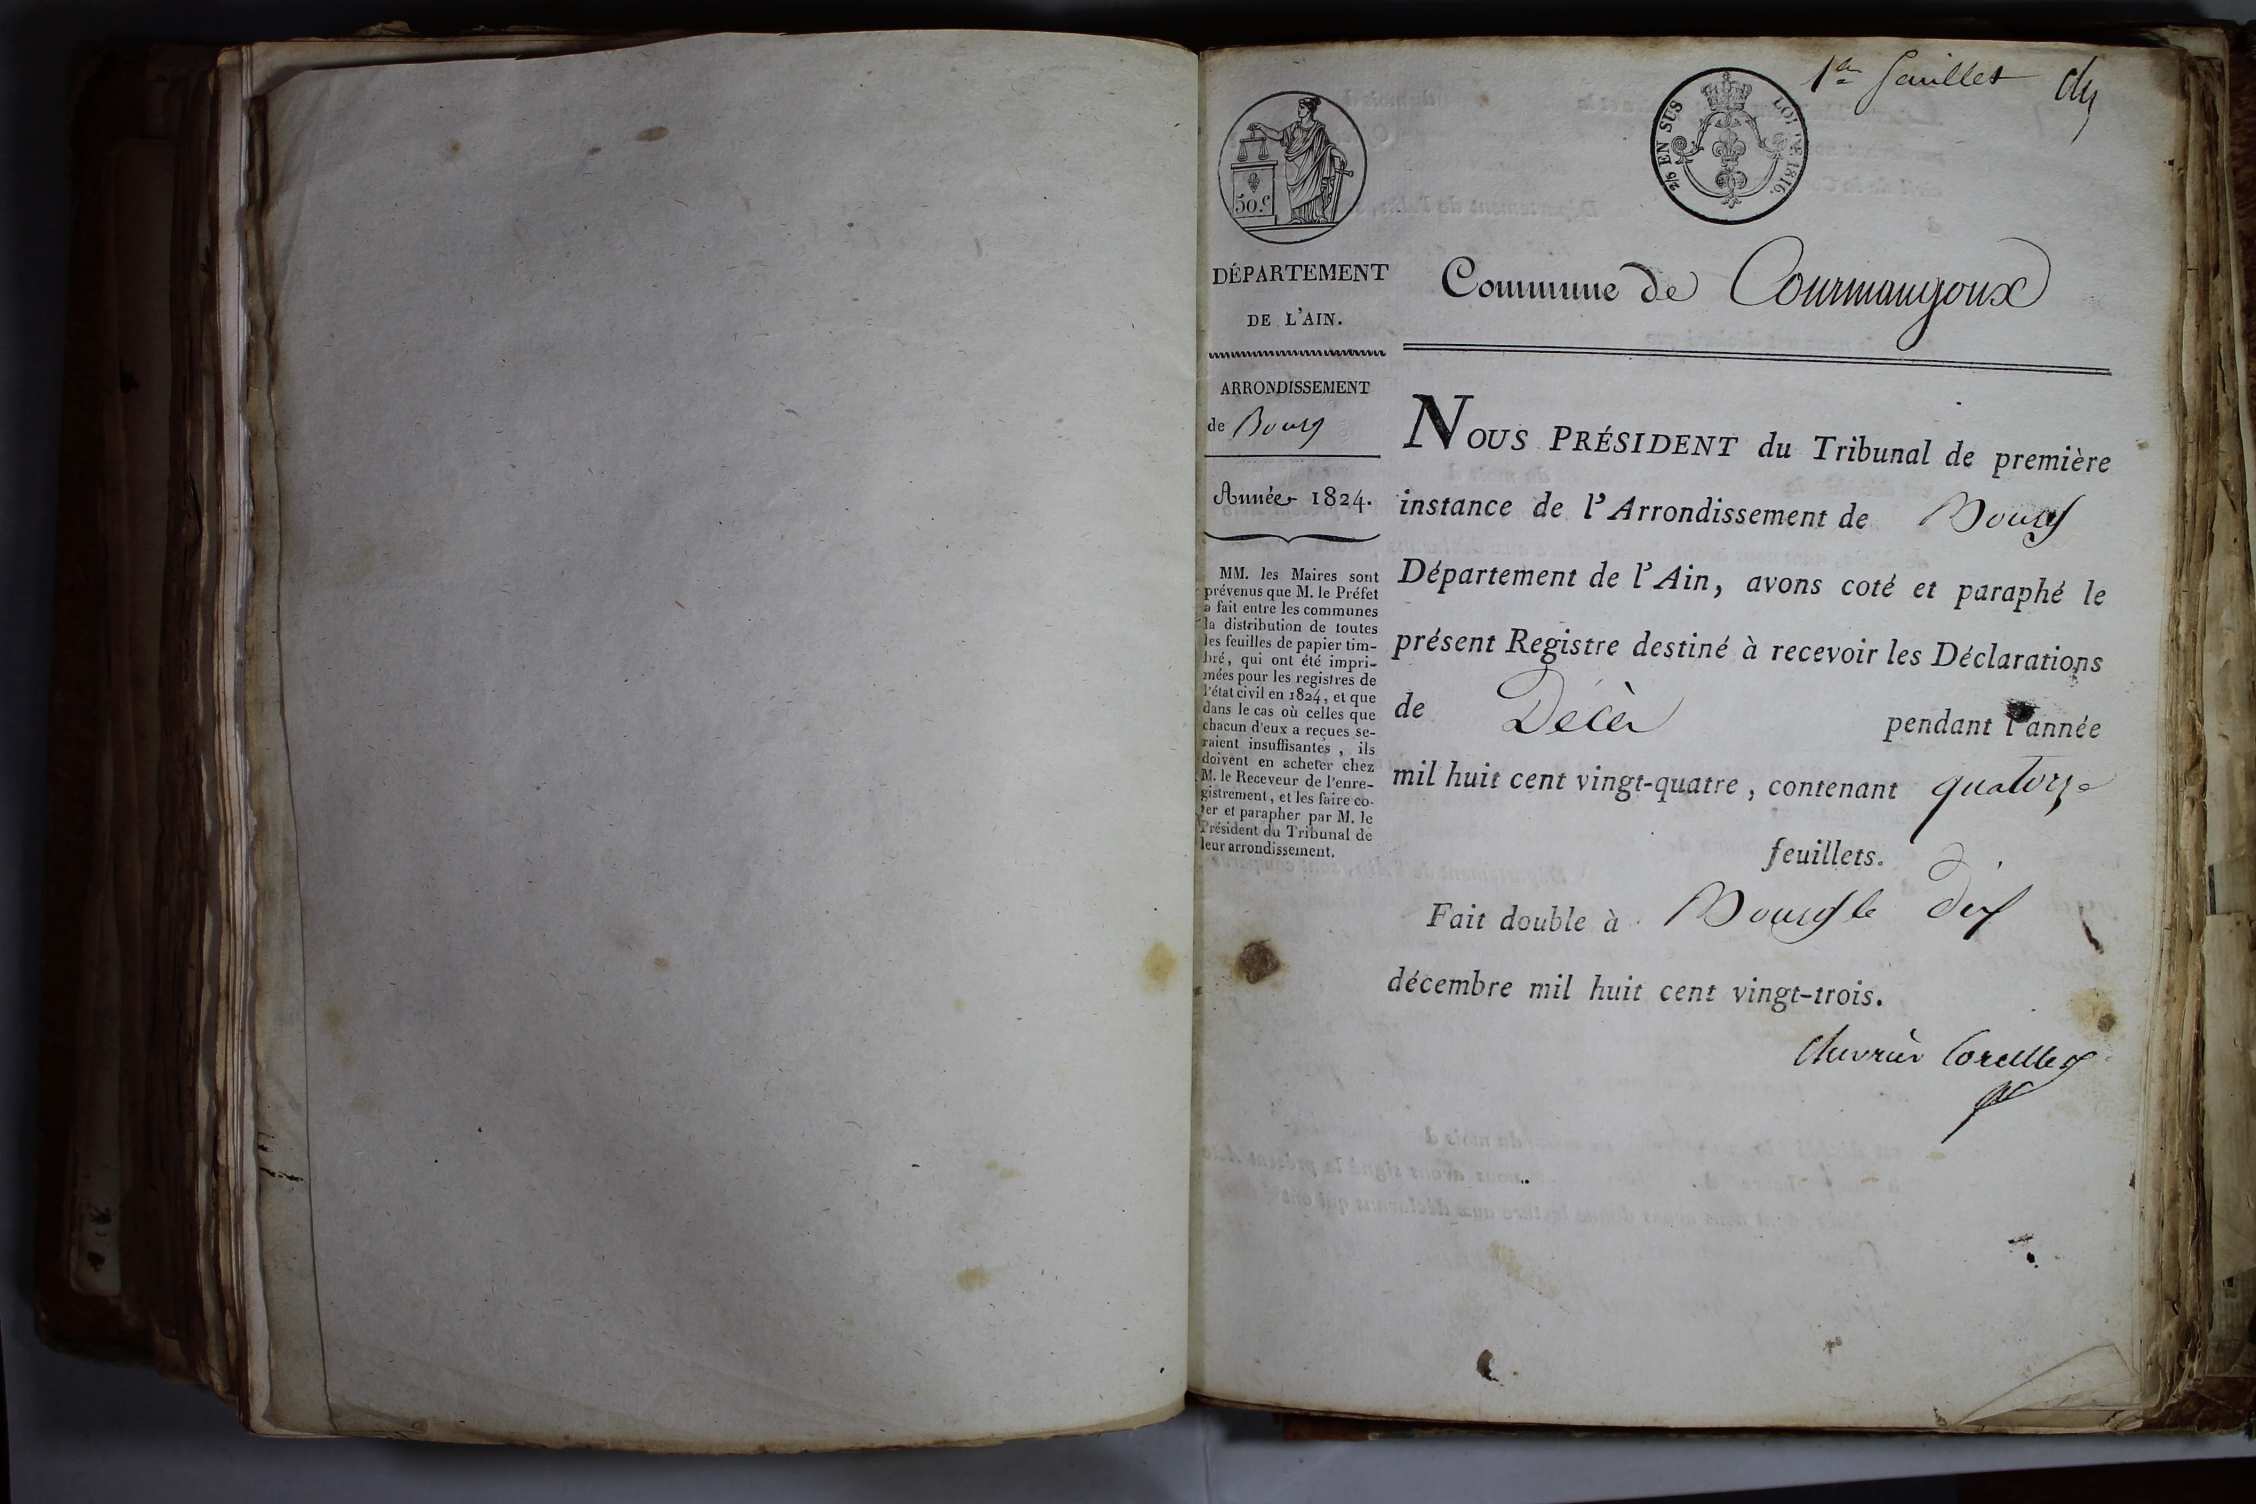 1er feuillet
2/5 EN SUS LOI DE 1816.
50.c
DÉPARTEMENT
DE L'AIN.
ARRONDISSEMENT
de Bourg
Année 1824.
MM. les Maires sont
prévenus que M. le Préfet
a fait entre les communes
la distribution de toutes
les feuilles de papier tim-
bré, qui ont été impri-
mées pour les registres de
l'état civil en 1824, et que
dans le cas où celles que
chacun d'eux a reçues se-
raient insuffisantes, ils
doivent en acheter chez
M. le Receveur de l'enre-
gistrement, et les faire co-
ter et parapher par M. le
Président du Tribunal de
leur arrondissement.
Commune de Courmangoux
NOUS PRÉSIDENT du Tribunal de première
instance de l'Arrondissement de Bourg
Département de l'Ain, avons coté et paraphé le
présent Registre destiné à recevoir les Déclarations
de Décès pendant l'année
mil huit cent vingt-quatre, contenant quatorze
feuillets.
Fait double à Bourg le dix
décembre mil huit cent vingt-trois.